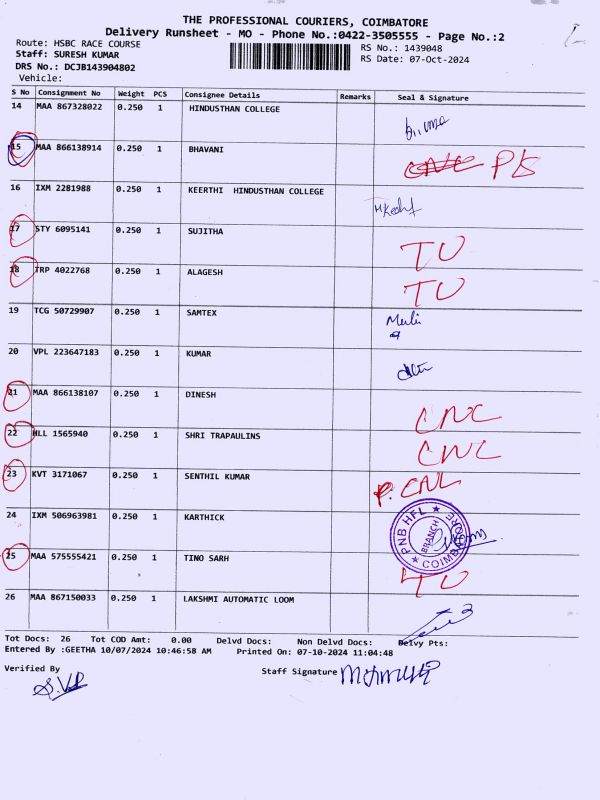 THE PROFESSIONAL COURIERS, COIMBATORE
Delivery Runsheet - MO - Phone No.:0422-3505555 - Page No.:2
Route: HSBC RACE COURSE
RS No.: 1439048
Staff: SURESH KUMAR
RS Date: 07-Oct-2024
DRS No.: DCJB143904802
Vehicle:
S No Consignment No Weight PCS Consignee Details Remarks Seal & Signature
14 MAA 867328022 0.250 1 HINDUSTHAN COLLEGE
15 MAA 866138914 0.250 1 BHAVANI
16 IXM 2281988 0.250 1 KEERTHI HINDUSTHAN COLLEGE
17 STY 6095141 0.250 1 SUJITHA TU
18 TRP 4022768 0.250 1 ALAGESH TU
19 TCG 50729907 0.250 1 SAMTEX
20 VPL 223647183 0.250 1 KUMAR
21 MAA 866138107 0.250 1 DINESH CNC
22 HLL 1565940 0.250 1 SHRI TRAPAULINS CNC
23 KVT 3171067 0.250 1 SENTHIL KUMAR
24 IXM 506963981 0.250 1 KARTHICK PNB HFL BRANCH COIMBATORE
25 MAA 575555421 0.250 1 TINO SARH TU
26 MAA 867150033 0.250 1 LAKSHMI AUTOMATIC LOOM
Tot Docs: 26 Tot COD Amt: 0.00 Delvd Docs: Non Delvd Docs: Delvy Pts:
Entered By :GEETHA 10/07/2024 10:46:58 AM Printed On: 07-10-2024 11:04:48
Verified By
Staff Signature